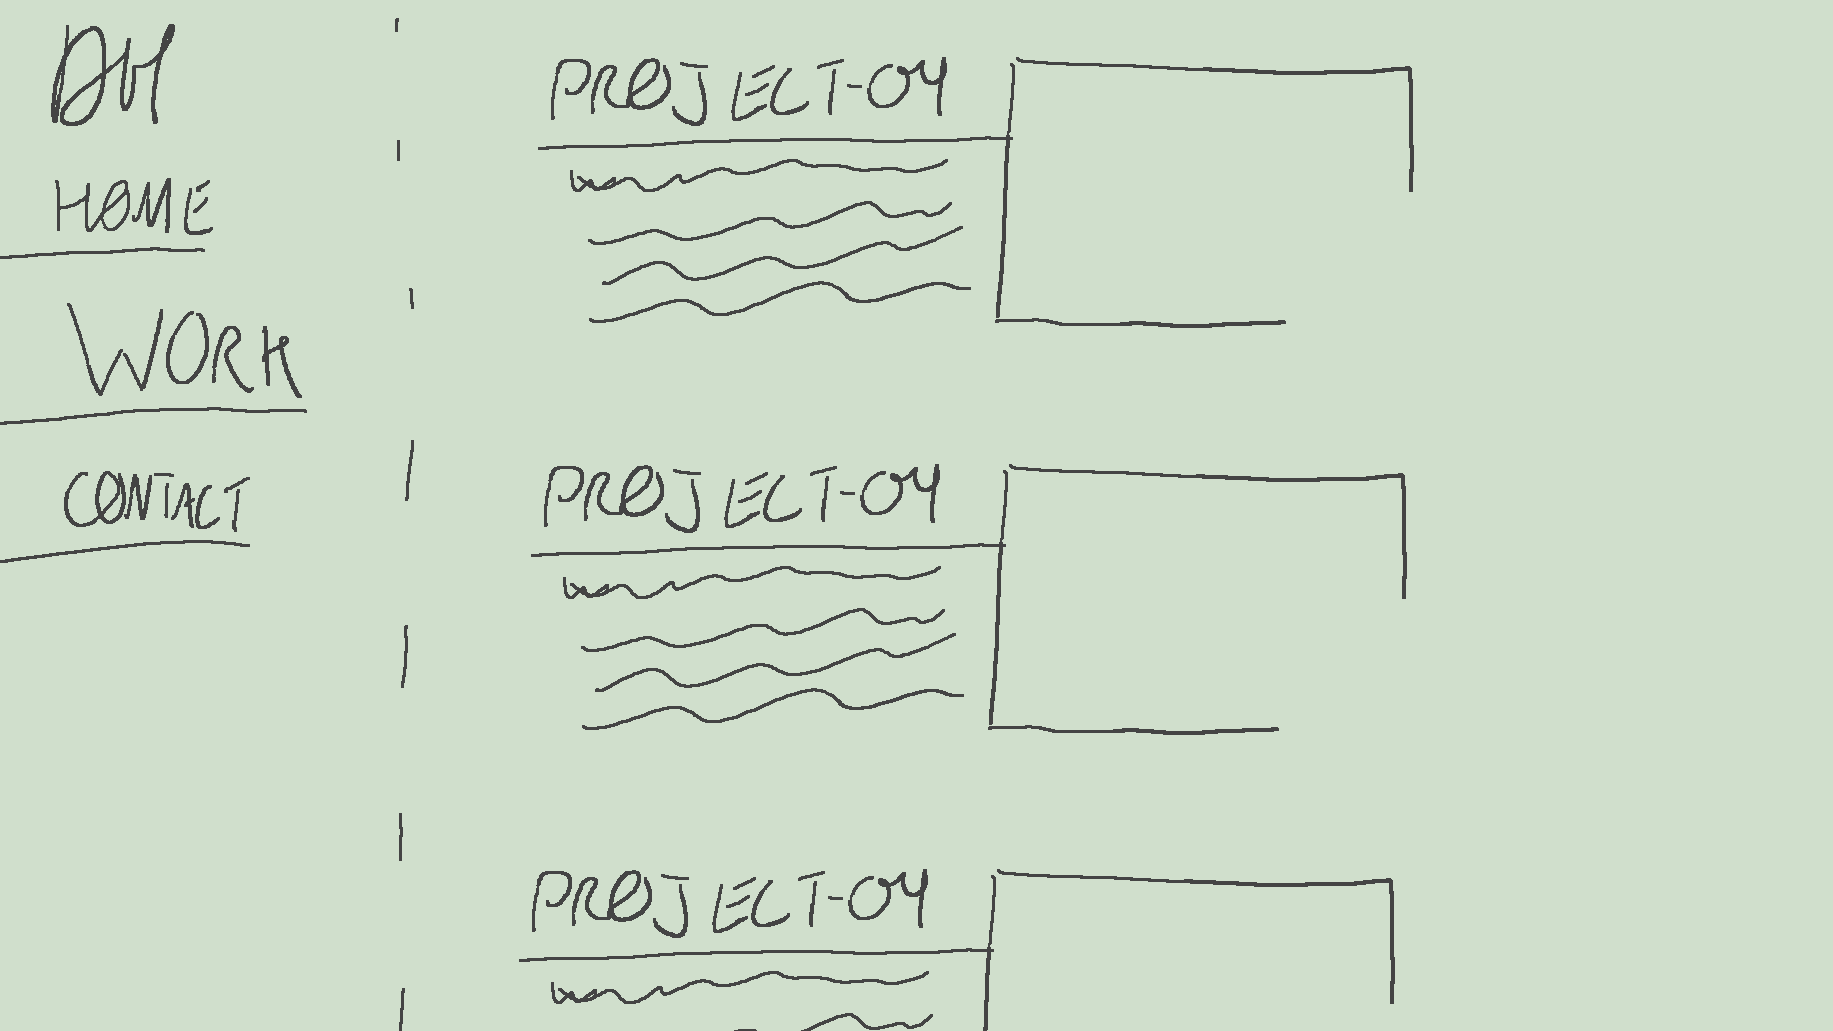 HOME
WORK
CONTACT
PROJECT-04
PROJECT-04
PROJECT-04